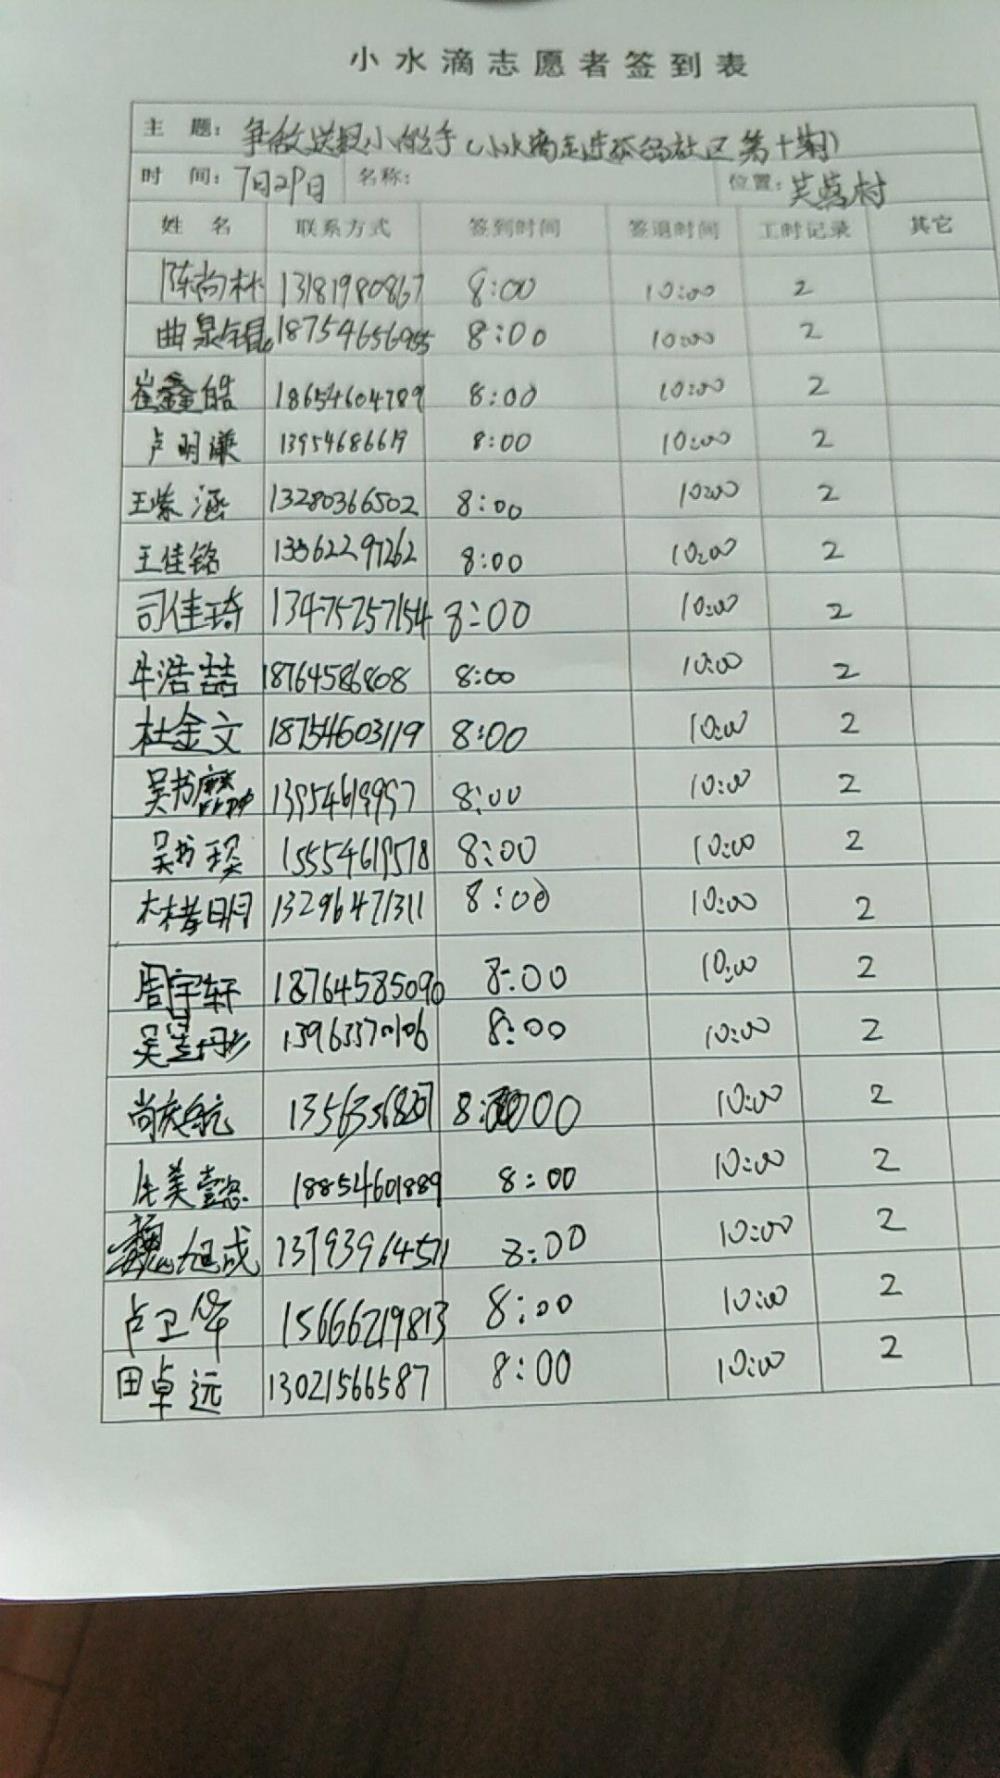 小水滴志愿者签到表
主 题： 争做送报小能手（小水滴走进社区第十期）
时 间：7月29日 名称： 位置：芙蓉村
姓 名 联系方式 签到时间 签退时间 工时记录 其它
陈尚林 13181980867 8:00 10:00 2
曲泉锟 18754656955 8:00 10:00 2
崔鑫皓 18654604789 8:00 10:00 2
卢明谦 1395468661 8:00 10:00 2
王紫涵 13280366502 8:00 10:00 2
王佳铭 13562297262 8:00 10:00 2
司佳琦 13475257154 8:00 10:00 2
牛浩喆 18764586808 8:00 10:00 2
杜金文 18754603119 8:00 10:00 2
吴书 13954619997 8:00 10:00 2
吴书瑛 15554619578 8:00 10:00 2
13296471311 8:00 10:00 2
周宇轩 18764585090 8:00 10:00 2
吴昱彤 13963370106 8:00 10:00 2
尚庆航 13563356207 8:00 10:00 2
美懿 18854601889 8:00 10:00 2
魏旭成 13793964571 8:00 10:00 2
卢卫华 15666219813 8:00 10:00 2
田卓远 13021566587 8:00 10:00 2